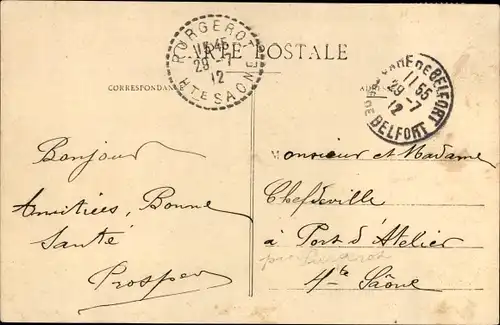 CARTE POSTALE
PURGEROT
11 45
29 -7
12
HTE SAONE
GARE DE BELFORT
11 55
29 -7
12
DE BELFORT
CORRESPONDANCE
ADRESSE
Bonjour
Amitiées, Bonne
Santé
Prosper
Monsieur et Madame
Chefdeville
à Port d'Atelier
par Purgerot
Hte Saône